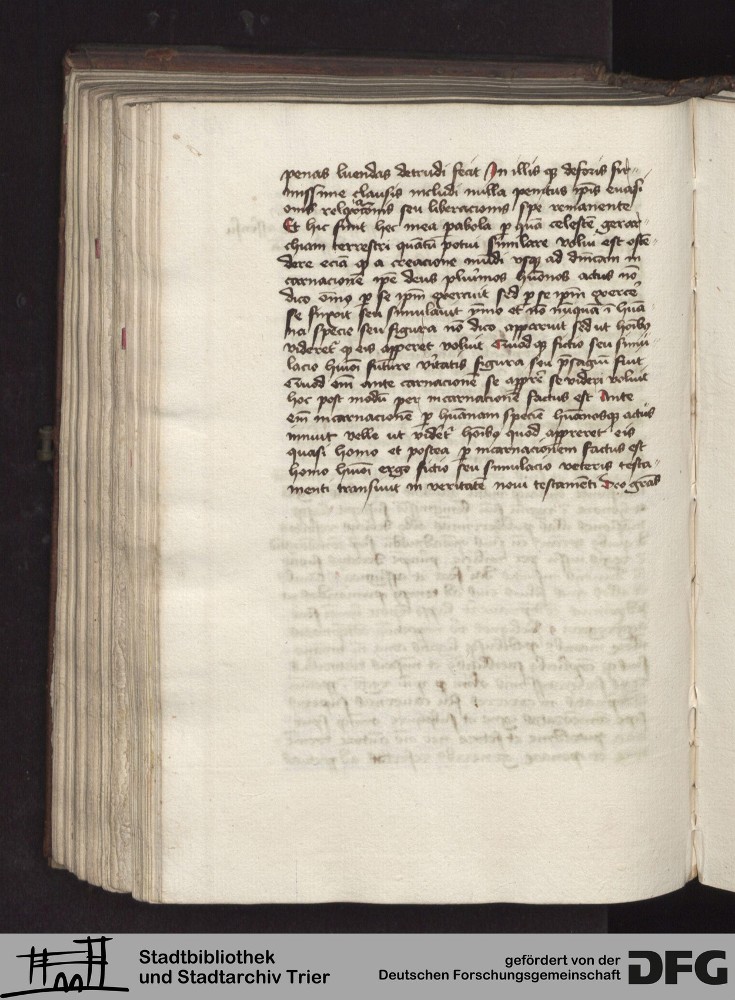 penas luendas detrudi fecit In illis qͥ deforis fir-
missime clausis includi nulla penitus ipīs euasi
onis relaxacionis seu liberacionis spe remanente
Et hic sunt hec mea pabola ꝑ quā celestē gerar-
chiam terrestri quātū potui similare volui est ostē-
dere eciā qͥ a creacione mūdi vsqꝫ ad dn̄icam in
carnacionē ipē deus plurimos hūanos actus nō
dico om̄o ꝑ se ipm̄ exercuit sed ꝑ se ipm̄ exercē
se finxit seu simulauit pͥmo et nō nūquā ī huā
na specie seu figura nō dico apparuit sed ut hoībꝫ
videret qͥ eis apperet voluit Quod qꝫ fictio seu simu
lacio huiꝰ future vͥtatis figura seu pͥsagiū fuit
Quod em̄ ante carnacionē se apprē se videri voluit
hoc post modū per incarnacionē factus est Ante
em̄ incarnacionē ꝑ hūanam speciē hūanosqꝫ actus
innuit velle ut videt hoībꝫ quod appareret eis
quasi homo et postea ꝑ incarnacionem factus est
homo huiꝰ ergo fictio seu simulacio veteris testa-
menti transiuit in veritatē noui testamēti Deo gras
Stadtbibliothek
und Stadtarchiv Trier
gefördert von der
Deutschen Forschungsgemeinschaft
DFG